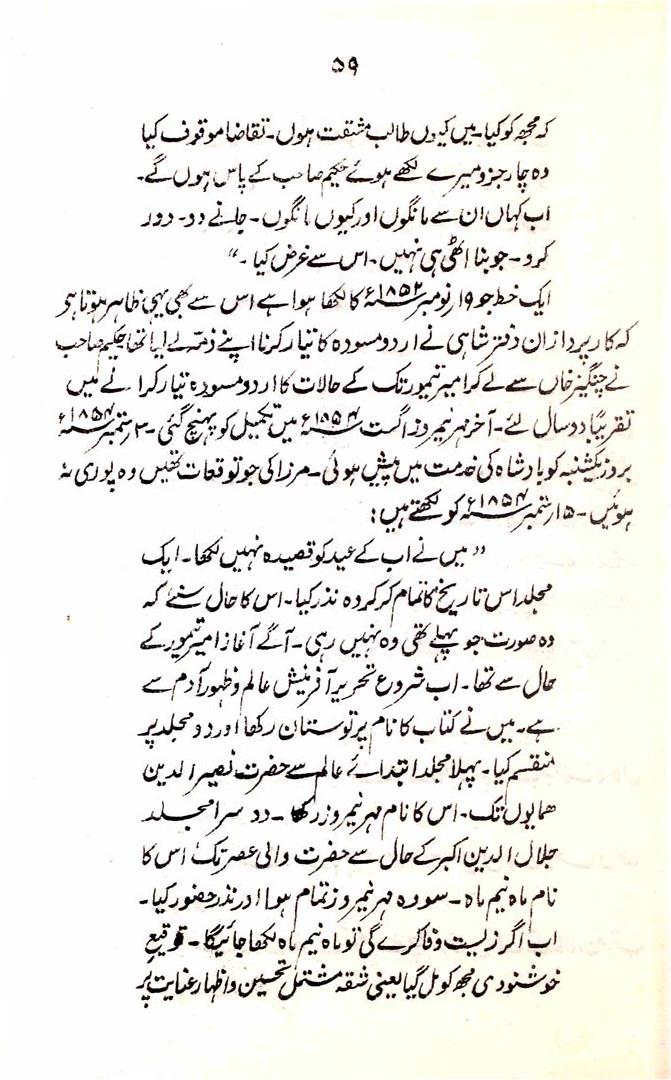 ۵۹
کہ مجھ کو کیا۔ میں کیوں طالب مشقت ہوں۔ تقاضا موقوف کیا
وہ چار جزو میرے لکھے ہوئے حکیم صاحب کے پاس ہوں گے۔
اب کہاں ان سے مانگوں اور کیوں مانگوں۔ جانے دو۔ دور
کرو۔ جو بنا اٹھی ہی نہیں۔ اس سے غرض کیا۔"
ایک خط جو ۱۹؍ نومبر ۱۸۵۲ء کا لکھا ہوا ہے اس سے بھی یہی ظاہر ہوتا ہی
کہ کارپردازان دفتر شاہی نے اردو مسودہ کا تیار کرنا اپنے ذمہ لے لیا تھا حکیم صاحب
نے چنگیز خاں سے لے کر امیر تیمور تک کے حالات کا اردو مسودہ تیار کرانے میں
تقریباً دو سال لئے۔ آخر مہر نیمروز اگست ۱۸۵۴ء میں تکمیل کو پہنچ گئی۔ ۳؍ ستمبر ۱۸۵۴ء
بروز یکشنبہ کو بادشاہ کی خدمت میں پیش ہوئی۔ مرزا کی جو توقعات تھیں وہ پوری نہ
ہوئیں۔ ۱۵؍ ستمبر ۱۸۵۴ء کو لکھتے ہیں:
"میں نے اب کے عید کو قصیدہ نہیں لکھا۔ ایک
مجلد اس تاریخ کا تمام کر کر وہ نذر کیا۔ اس کا حال سنئے کہ
وہ صورت جو پہلے تھی وہ نہیں رہی۔ آگے آغاز امیر تیمور کے
حال سے تھا۔ اب شروع تحریر آفرینش عالم و ظہور آدم سے
ہے۔ میں نے کتاب کا نام پرتوستان رکھا اور دو مجلد پر
منقسم کیا۔ پہلا مجلد ابتدائے عالم سے حضرت نصیر الدین
ہمایوں تک۔ اس کا نام مہر نیمروز رکھا۔ دوسرا مجلد
جلال الدین اکبر کے حال سے حضرت والی عصر تک اس کا
نام ماہ نیم ماہ۔ سو وہ مہر نیمروز تمام ہوا اور نذر حضور کیا۔
اب اگر زیست وفا کرے گی تو ماہ نیم ماہ لکھا جائیگا۔ توقیع
خوشنودی مجھ کو مل گیا یعنی شقہ مشتمل تحسین و اظہار عنایت پر